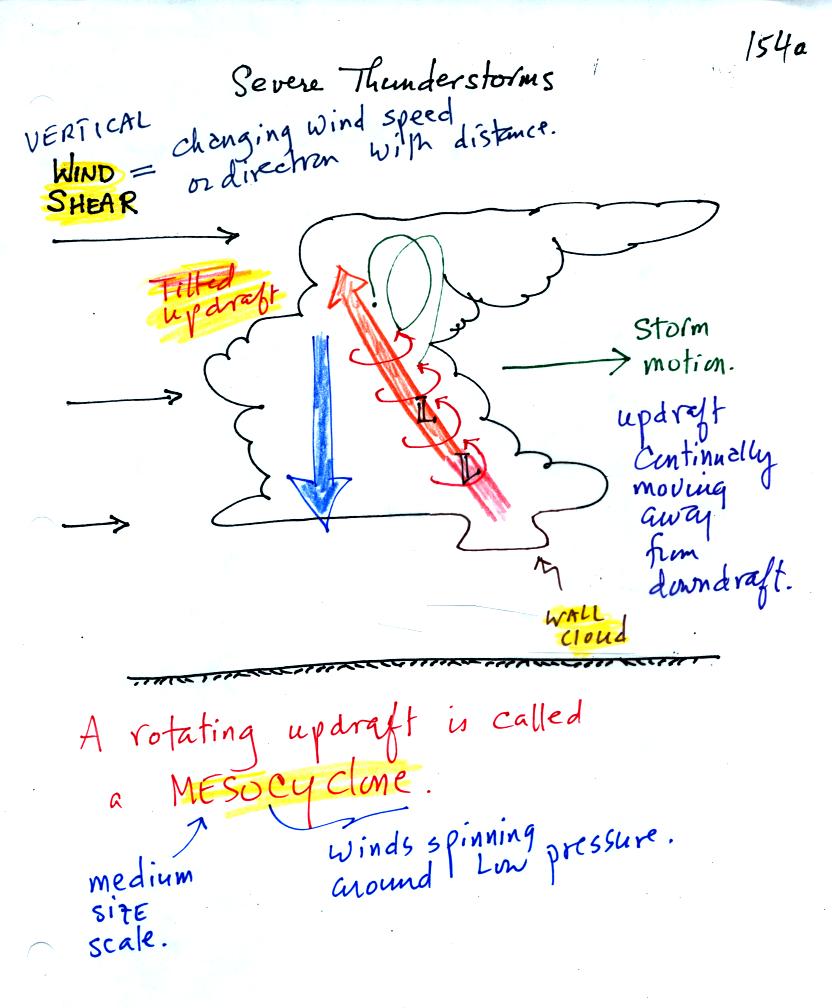 154a
Severe Thunderstorms
VERTICAL
WIND
SHEAR
= changing wind speed
or direction with distance.
Tilted
updraft
L
L
Storm
motion.
updraft
Continually
moving
away
from
downdraft.
WALL
Cloud
A rotating updraft is called
a MESOCYClone.
medium
SIZE
scale.
Winds spinning
around Low pressure.